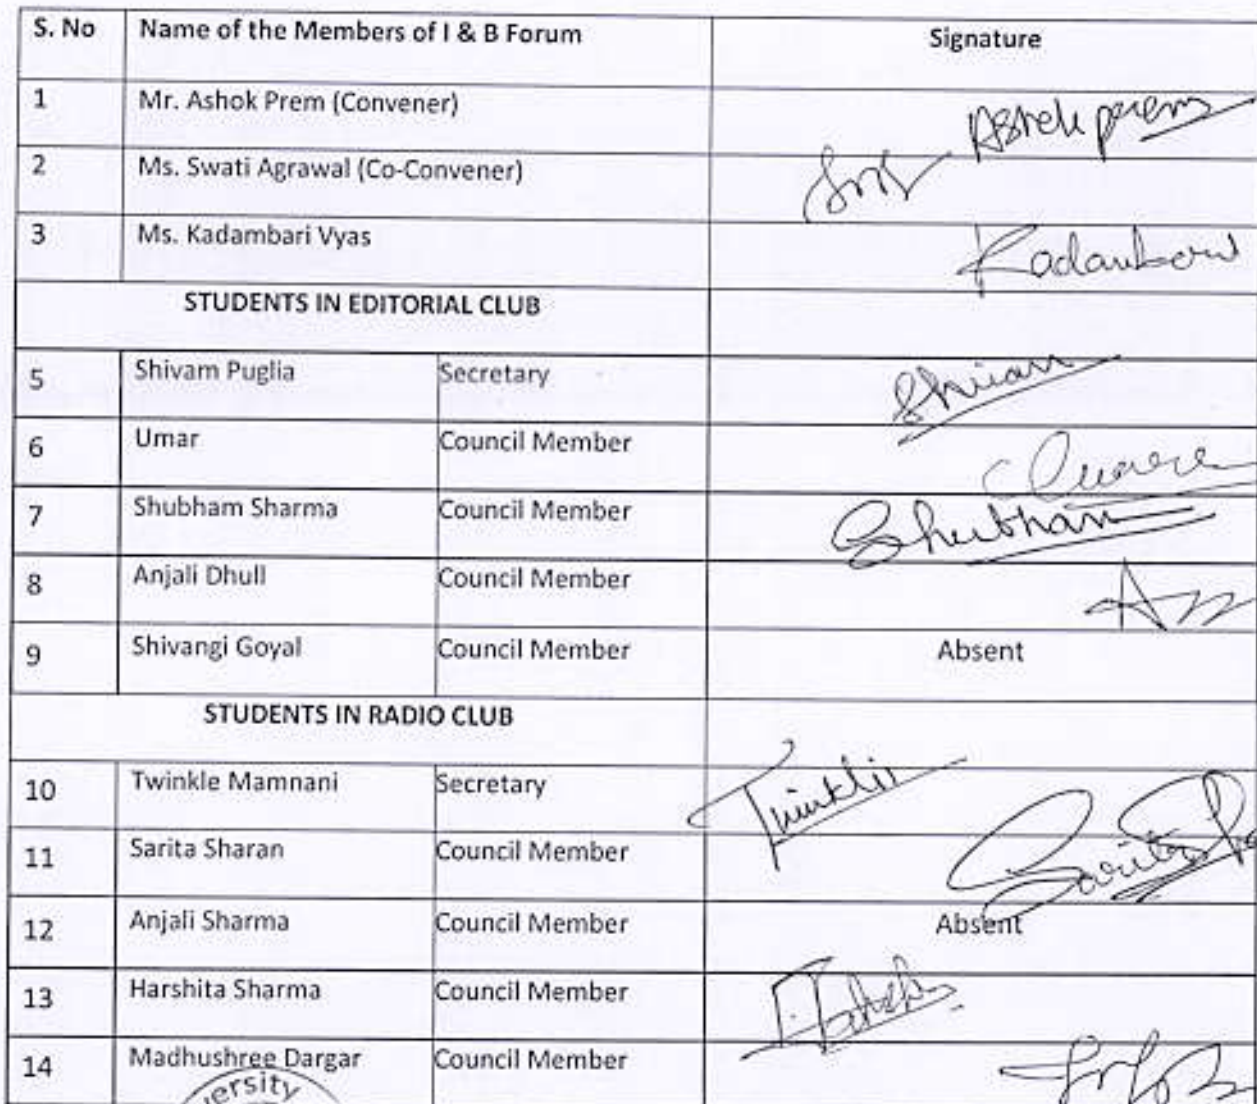 S. No Name of the Members of I & B Forum Signature
1 Mr. Ashok Prem (Convener) Ashok prem
2 Ms. Swati Agrawal (Co-Convener)
3 Ms. Kadambari Vyas Kadambari
STUDENTS IN EDITORIAL CLUB
5 Shivam Puglia Secretary Shivam
6 Umar Council Member
7 Shubham Sharma Council Member Shubham
8 Anjali Dhull Council Member
9 Shivangi Goyal Council Member Absent
STUDENTS IN RADIO CLUB
10 Twinkle Mamnani Secretary Twinkle
11 Sarita Sharan Council Member Sarita
12 Anjali Sharma Council Member Absent
13 Harshita Sharma Council Member
14 Madhushree Dargar Council Member
ersity